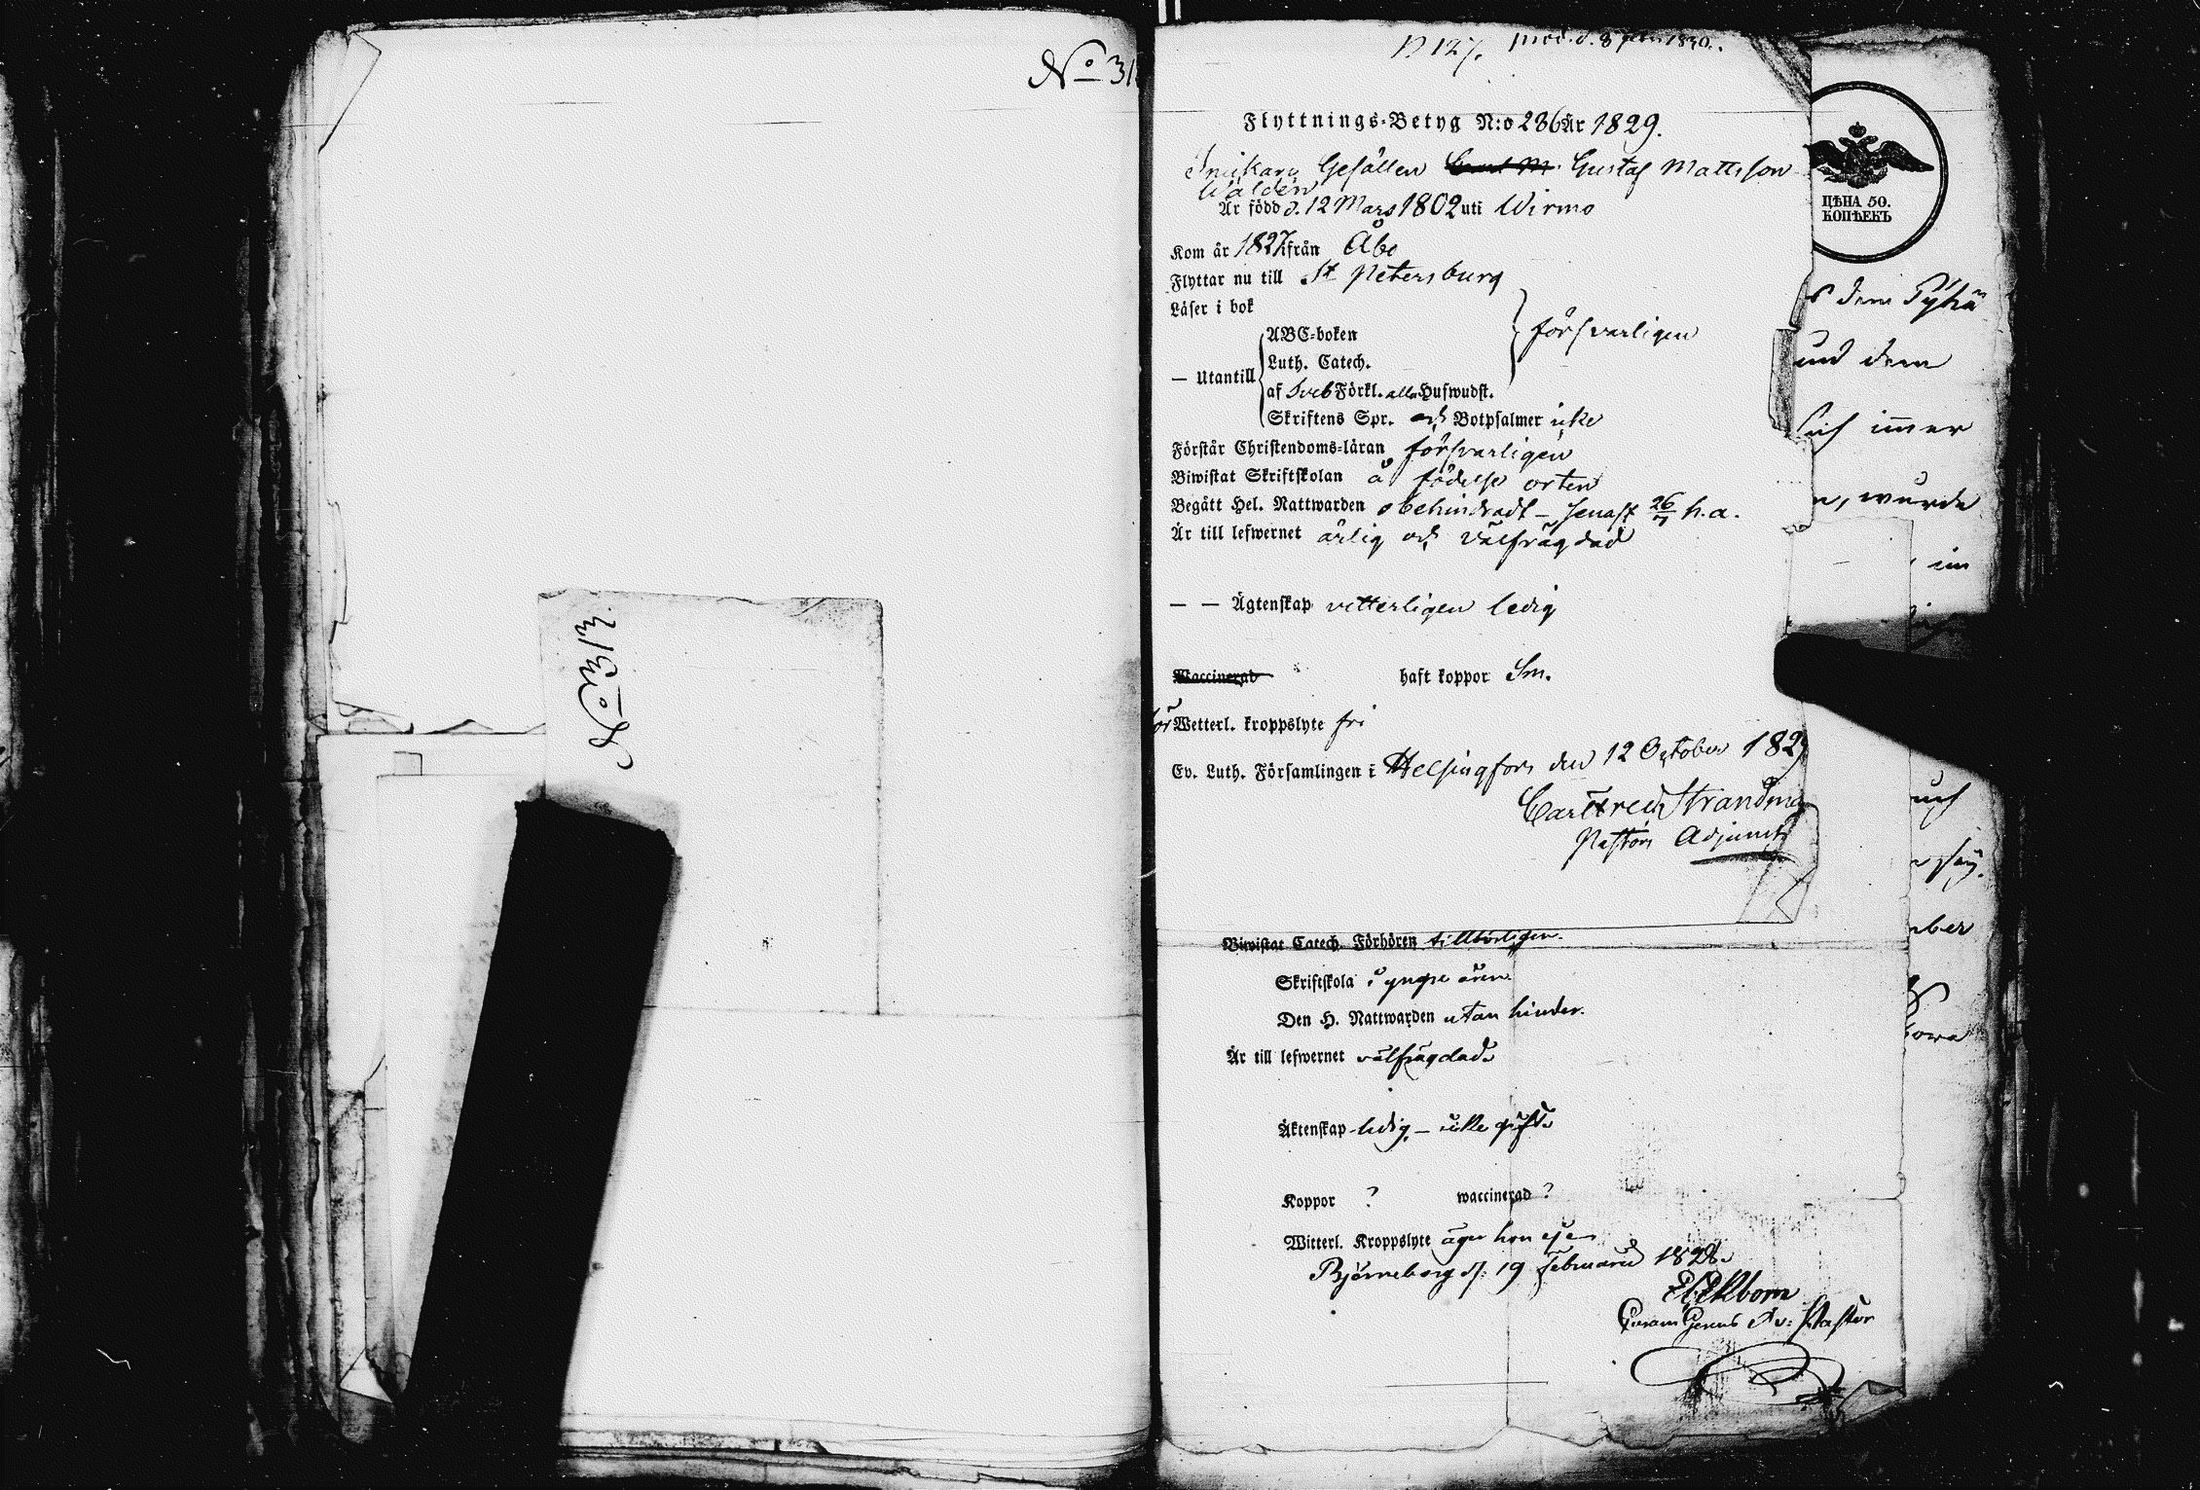 No 31
No 313
N 127. prod. d. 8 1830.
Flyttnings-Betyg N:o 236 År 1829.
Snickare Gesällen Gustaf Mattsson
Waldén
Är född d. 12 Mars 1802 uti Wirmo
Kom år 1827 från Åbo
Flyttar nu till St Petersburg
Läser i bok
ABC-boken
försvarligen
Luth. Catech.
— Utantill
af Sveb Förkl. alla Huswudst.
Skriftens Spr. och Botpsalmer icke
Förstår Christendoms-läran försvarligen
Biwistat Skriftskolan å födelse orten
Begått Hel. Nattwarden obehindradt – senast 26/7 h.a.
Är till lefwernet ärlig och välfrägdad
— — Ägtenskap vetterligen ledig
Waccinerad haft koppor Sm.
för Wetterl. kroppslyte fri
Ev. Luth. Församlingen i Helsingfors den 12 October 1829
Carl Fredr Strandma
Pastors Adjunct
Biwistat Catech. Förhören tillbörligen.
Skriftskola i yngre åren
Den H. Nattwarden utan hinder.
Är till lefwernet välfrägdad.
Äktenskap ledig, – icke gift.
Koppor ? waccinerad ?
Witterl. Kroppslyte äger hon ej
Björneborg d. 19 Februarii 1828.
Ekbom
Curam Gerens Av: Pastor
ЦѢНА 50.
КОПѢЕКЪ
dem
und dem
sich immer
n, wurde
im
ber